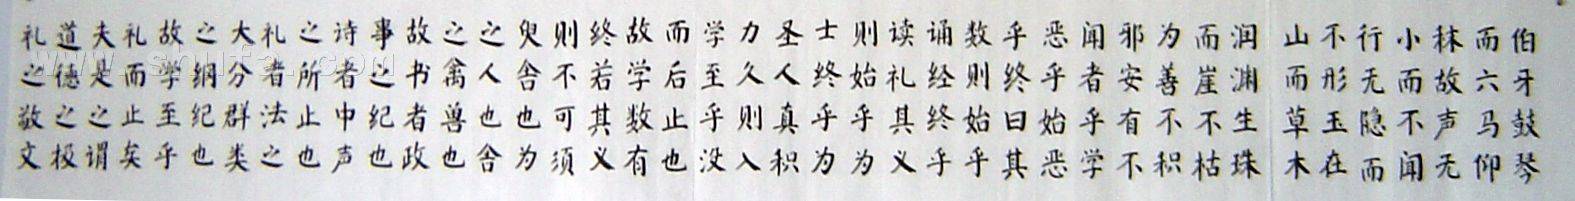 伯牙鼓琴
而六马仰
秣故声无
小而不闻
行无隐而
不形玉在
山而草木
润渊生珠
而崖不枯
为善不积
邪安有不
闻者乎学
恶乎始恶
乎终曰其
数则始乎
诵经终乎
读礼其义
则始乎为
士终乎为
圣人真积
力久则入
学至乎没
而后止也
故学数有
终若其义
则不可须
臾舍也为
之人也舍
之禽兽也
故书者政
事之纪也
诗者中声
之所止也
礼者法之
大分群类
之纲纪也
故学至乎
礼而止矣
夫是之谓
道德之极
礼之敬文